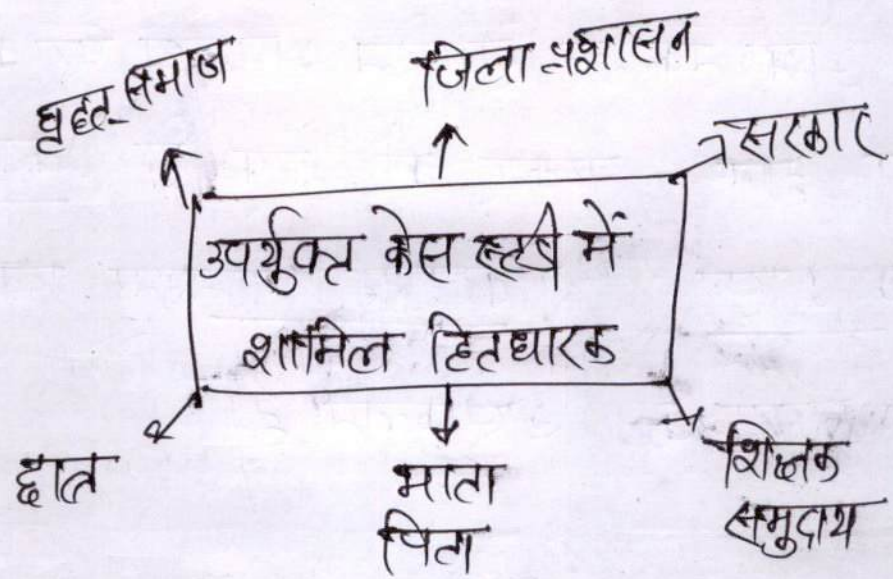 वृहत समाज
जिला प्रशासन
सरकार
उपर्युक्त केस स्टडी में
शामिल हितधारक
छात्र
माता
पिता
शिक्षक
समुदाय